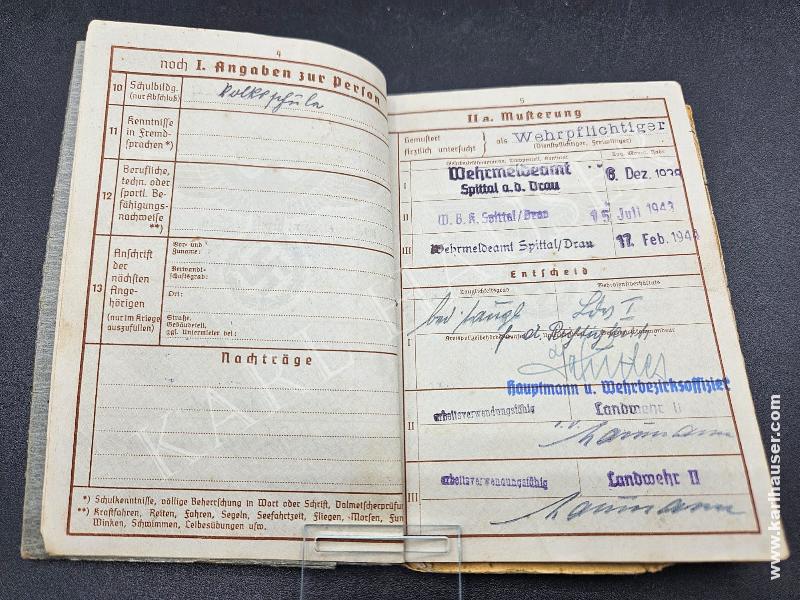 4
noch I. Angaben zur Person
10 Schulbildg. (nur Abschluß)
Volksschule
11 Kenntnisse in Fremd-
sprachen *)
12 Berufliche,
techn. oder
sportl. Be-
fähigungs-
nachweise
**)
13 Anschrift
der
nächsten
Ange-
hörigen
(nur im Kriege
auszufüllen)
Vor- und
Zuname:
Verwandt-
schaftsgrad:
Ort:
Straße,
Gebäudeteil,
ggf. Untermieter bei:
Nachträge
*) Schulkenntnisse, völlige Beherrschung in Wort oder Schrift, Dolmetscherprüfu
**) Kraftfahren, Reiten, Fahren, Segeln, Seefahrtzeit, Fliegen, Morsen, Fun
Winken, Schwimmen, Leibesübungen usw.
5
II a. Musterung
Gemustert
Ärztlich untersucht } als Wehrpflichtiger
(Dienstpflichtiger, Freiwilliger)
I Wehrmeldeamt
Spittal a.d. Drau
6. Dez. 1939
II W.B.K. Spittal/Drau 15. Juli 1943
III Wehrmeldeamt Spittal/Drau 17. Feb. 1944
Entscheid
Tauglichkeitsgrad Wehrdienstverhältnis
bed. taugl. Ldw I
I f. d. Richtigkeit
Hauptmann u. Wehrbezirksoffizier
II arbeitsverwendungsfähig Landwehr II
Naumann
III arbeitsverwendungsfähig Landwehr II
Naumann
KARL HAUSER
www.karlhauser.com